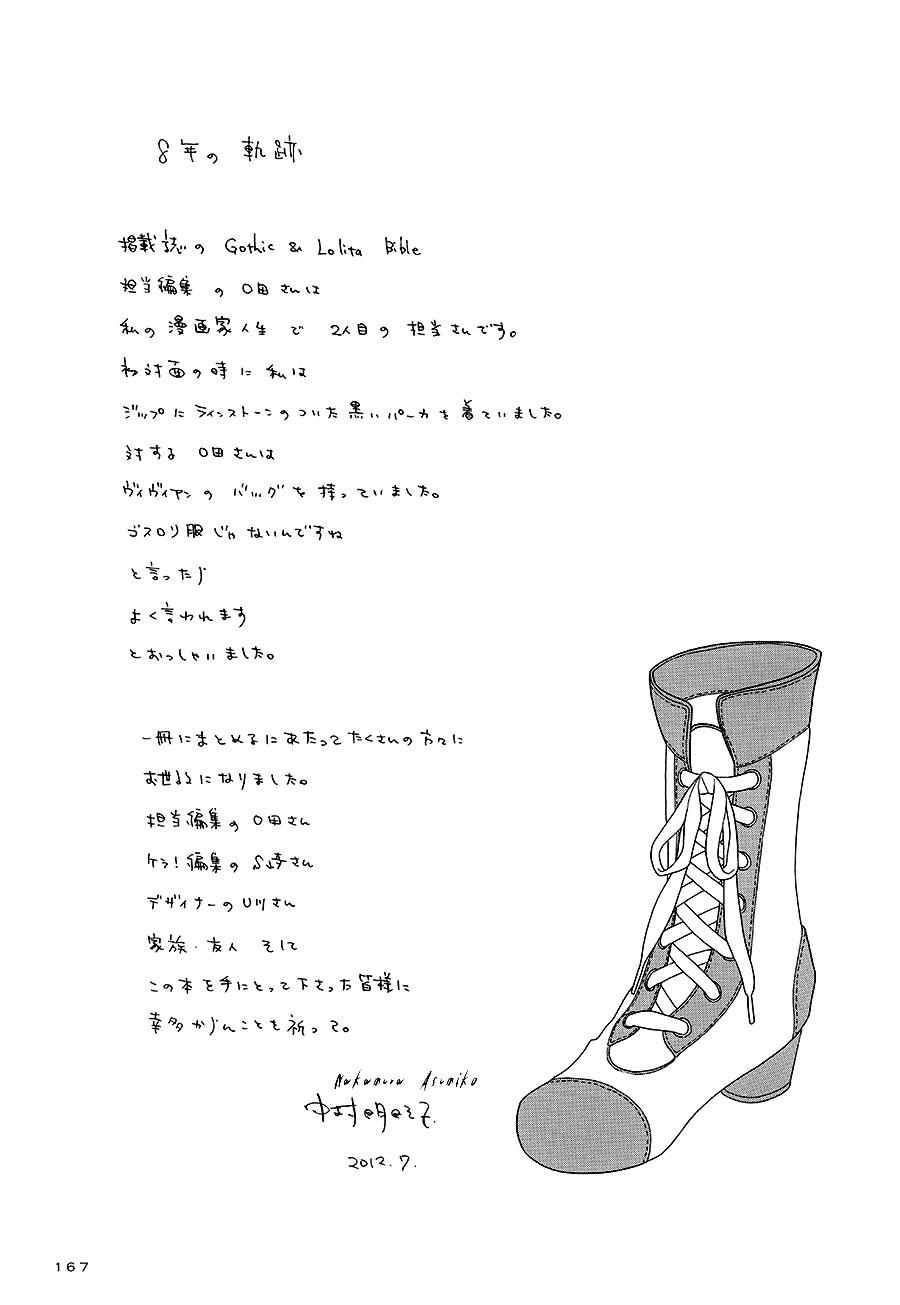 8年の 軌跡
掲載誌の Gothic & Lolita Bible
担当編集 の O田さんは
私の 漫画家人生 で 2人目の 担当さんです。
初対面の時に 私は
ジップに ラインストーンのついた 黒いパーカを 着ていました。
対する O田さんは
ヴィヴィアンの バッグを 持っていました。
ゴスロリ服じゃないんですね
と言ったら
よく言われます
とおっしゃいました。
一冊にまとめるにあたって たくさんの方々に
お世話になりました。
担当編集の O田さん
ケラ!編集の S崎さん
デザイナーの U川さん
家族・友人 そして
この本を手にとって下さった皆様に
幸多からんことを祈って。
Nakamura Asumiko
中村明日美子
2012.7.
167